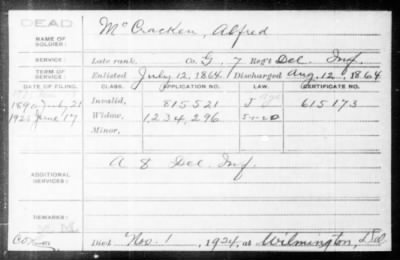 DEAD
NAME OF SOLDIER: McCracken, Alfred
SERVICE: Late rank, Co. G, 7 Reg't Del. Inf.
TERM OF SERVICE: Enlisted July 12, 1864. Discharged Aug. 12, 1864
DATE OF FILING. CLASS. APPLICATION NO. LAW. CERTIFICATE NO.
1890 July 21 Invalid, 815521 615173
June 17 Widow, 1,234,296
Minor,
ADDITIONAL SERVICES: A 8 Del. Inf.
REMARKS:
Died Nov. 1, 1924, at Wilmington, Del